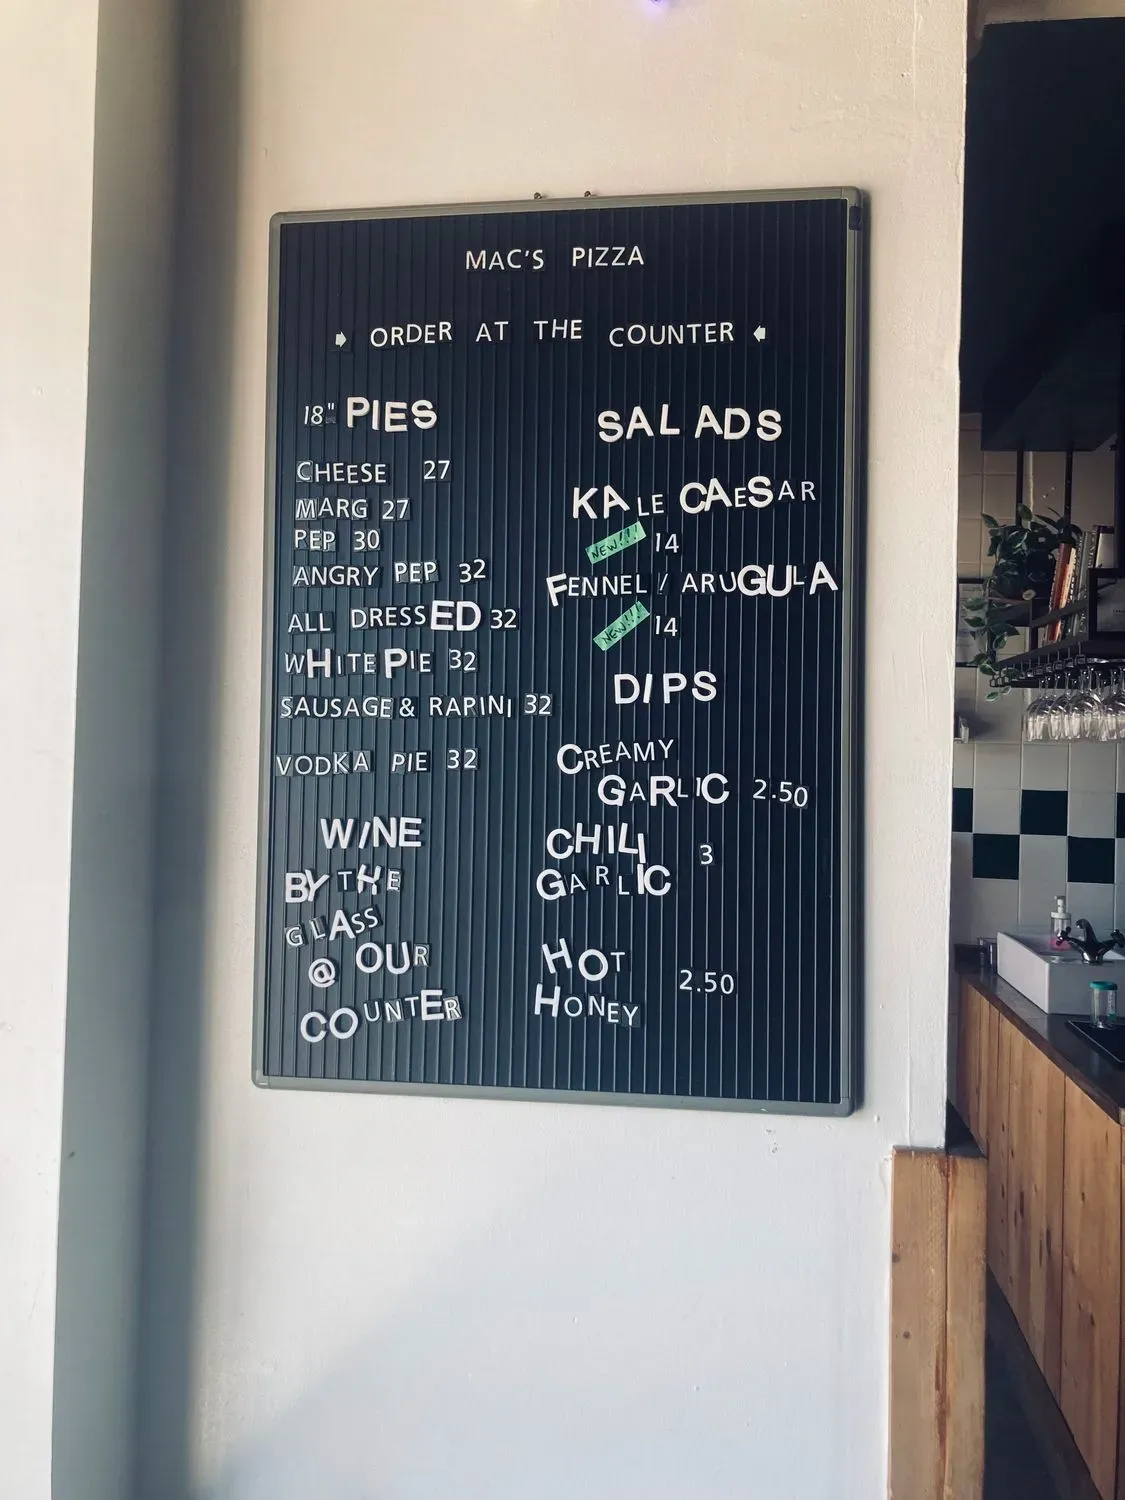 MAC'S PIZZA
ORDER AT THE COUNTER
18" PIES
CHEESE 27
MARG 27
PEP 30
ANGRY PEP 32
ALL DRESSED 32
WHITE PIE 32
SAUSAGE & RAPINI 32
VODKA PIE 32
WINE
BY THE
GLASS
@ OUR
COUNTER
SALADS
KALE CAESAR
NEW!!! 14
FENNEL / ARUGULA
NEW!!! 14
DIPS
CREAMY
GARLIC 2.50
CHILI 3
GARLIC
HOT
HONEY 2.50